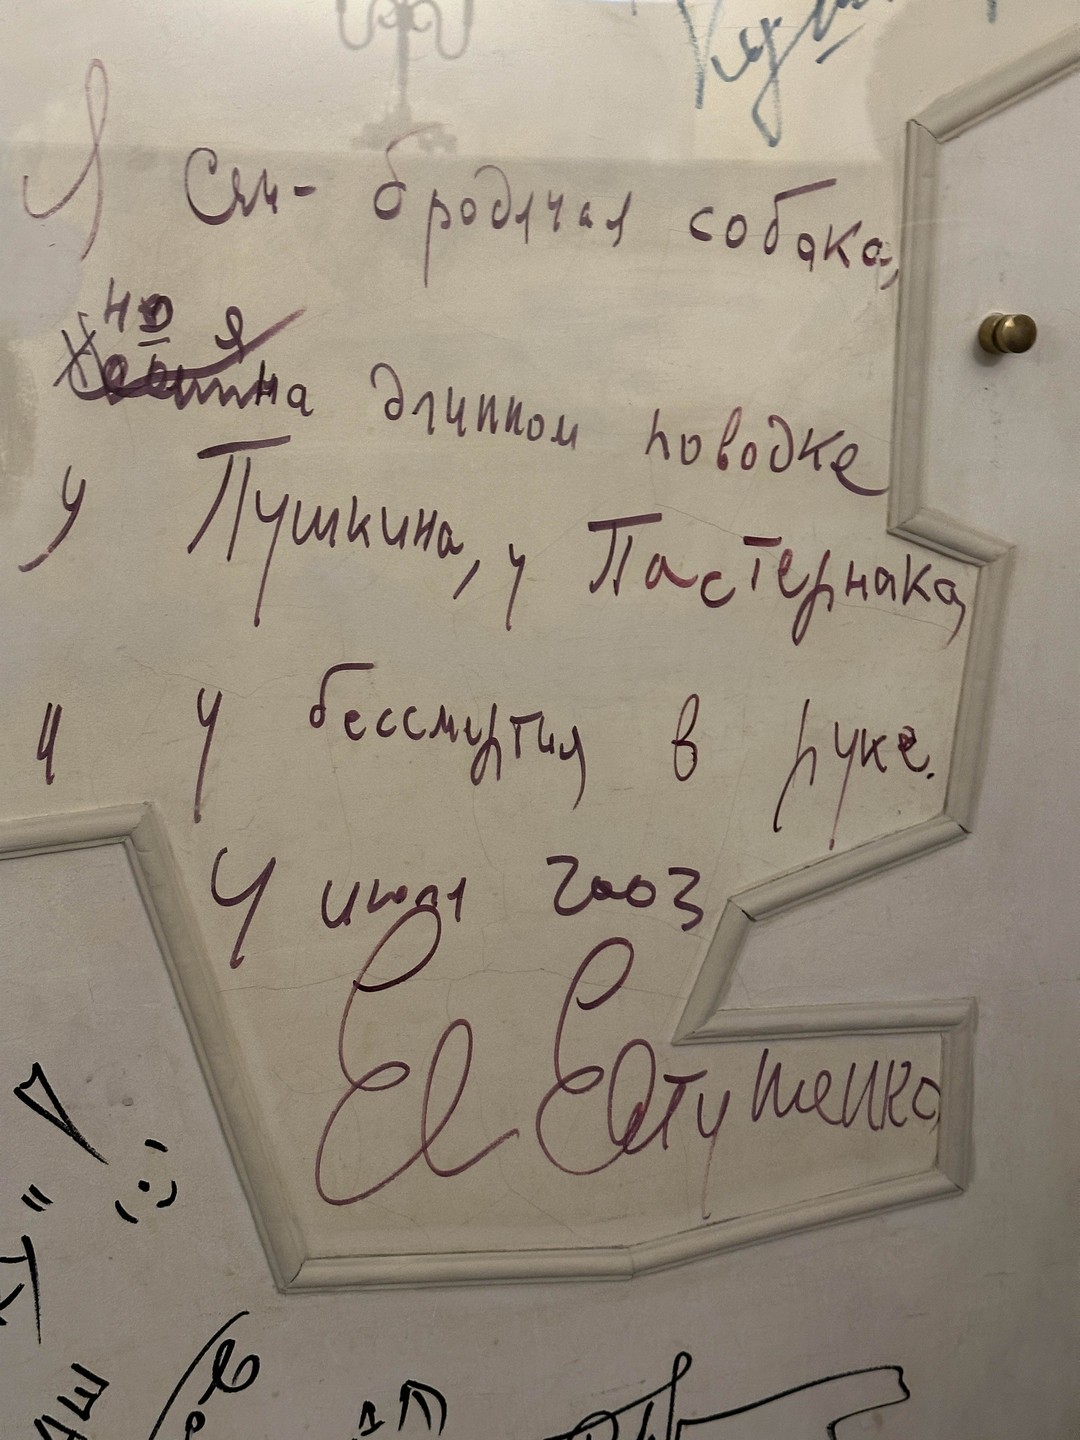 Я сам - бродячая собака,
но я
на длинном поводке
у Пушкина, у Пастернака,
и у бессмертия в руке.
4 июля 2003
Ев Евтушенко